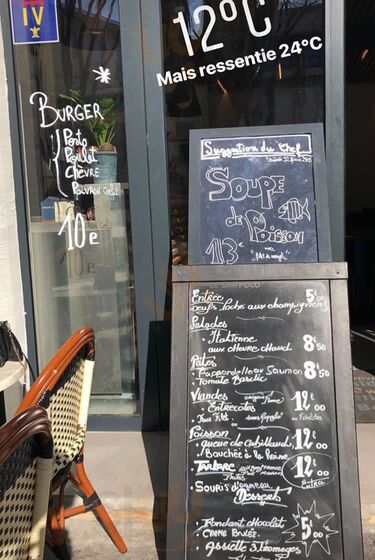 IV
12°C
Mais ressentie 24°C
BURGER
Pesto
Poulet
CHÈVRE
POIVRON
10e
Suggestion du Chef
SOUPE
de Poisson
13€
Entrée 5€00
oeufs Poché aux champignons
Salades
• Italienne
• aux chèvre chaud 8€50
Pâtes
• Pappardelle au Saumon 8€50
• Tomate Basilic
Viandes
• Entrecotes 12€00
Poisson
• queue de cabillaud 12€00
• Bouchée à la Reine
• Tartare 12€00
Frites
Souris d'agneau
Desserts
• Fondant chocolat 5€00
• CREME BRULÉE
Assiette 3 fromages